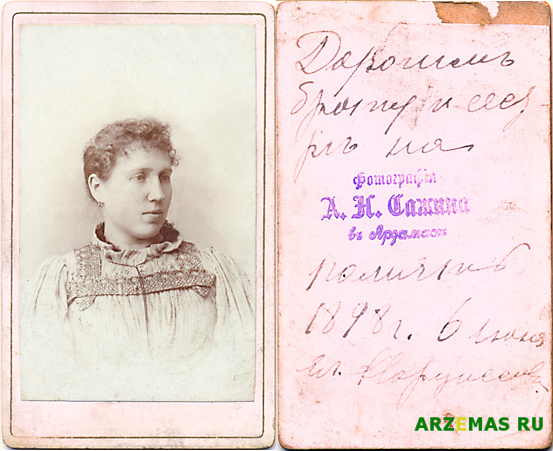 Дорогимъ
брату и сест-
рѣ на
Фотографія
А. Н. Сажина
въ Арзамасѣ
память
1898 г. 6 июня
ARZEMAS RU